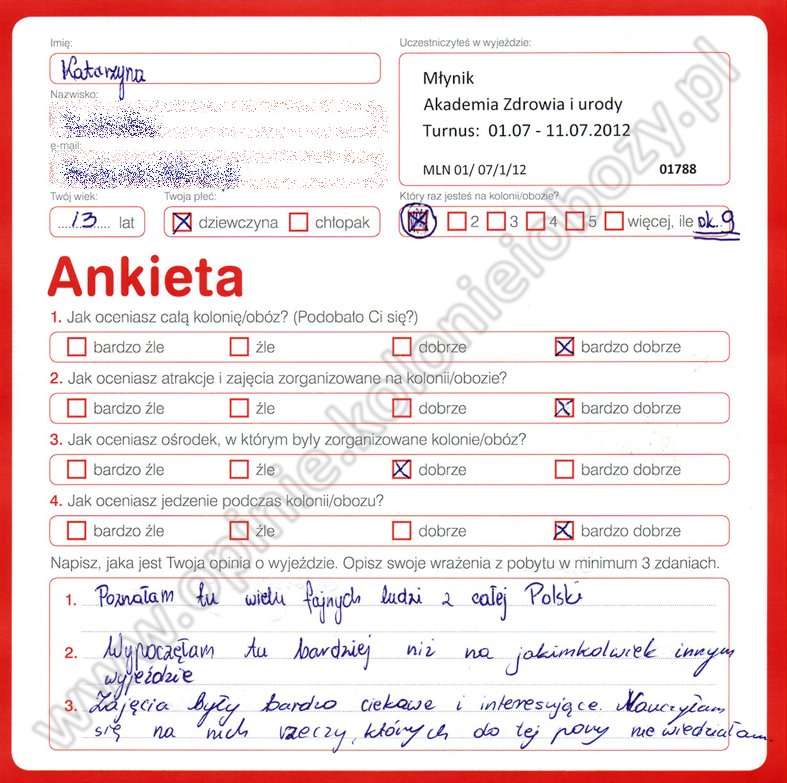 Imię:
Uczestniczyłeś w wyjeździe:
Katarzyna
Młynik
Akademia Zdrowia i urody
Turnus: 01.07 - 11.07.2012
MLN 01/ 07/1/12 01788
Nazwisko:
e-mail:
Twój wiek: Twoja płeć: Który raz jesteś na kolonii/obozie?
13 lat dziewczyna chłopak 2 3 4 5 więcej, ile ok. 9
Ankieta
1. Jak oceniasz całą kolonię/obóz? (Podobało Ci się?)
bardzo źle źle dobrze bardzo dobrze
2. Jak oceniasz atrakcje i zajęcia zorganizowane na kolonii/obozie?
bardzo źle źle dobrze bardzo dobrze
3. Jak oceniasz ośrodek, w którym były zorganizowane kolonie/obóz?
bardzo źle źle dobrze bardzo dobrze
4. Jak oceniasz jedzenie podczas kolonii/obozu?
bardzo źle źle dobrze bardzo dobrze
Napisz, jaka jest Twoja opinia o wyjeździe. Opisz swoje wrażenia z pobytu w minimum 3 zdaniach.
1. Poznałam tu wielu fajnych ludzi z całej Polski
2. Wypoczęłam tu bardziej niż na jakimkolwiek innym
wyjeździe
3. Zajęcia były bardzo ciekawe i interesujące. Nauczyłam
się na nich rzeczy, których do tej pory nie wiedziałam.
www.opinie.kolonieiobozy.pl